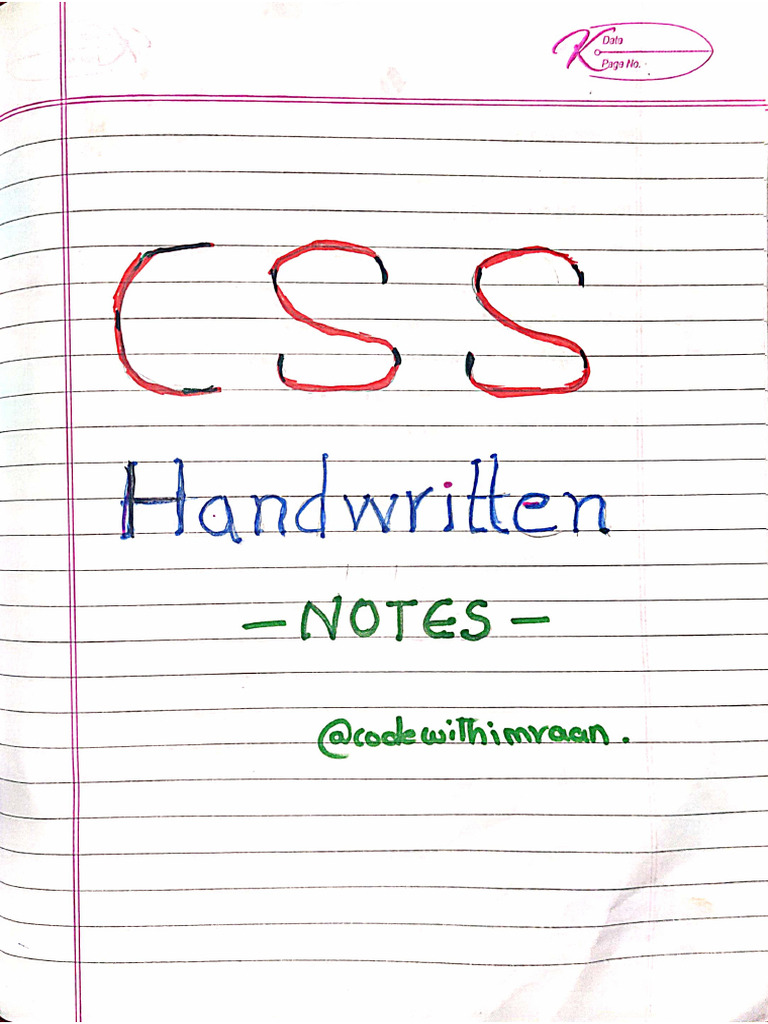 K Date
Page No.
CSS
Handwritten
- NOTES -
@codewithimraan.